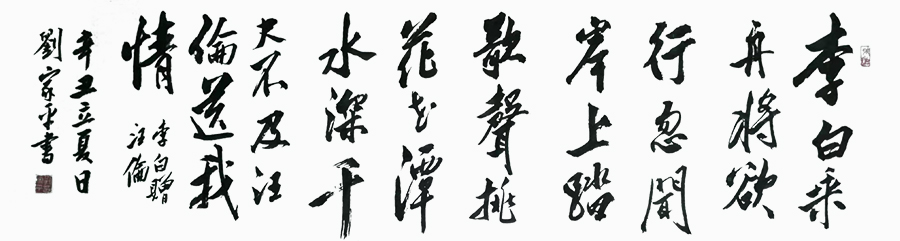 李白乘
舟將欲
行忽聞
岸上踏
歌聲桃
花潭
水深千
尺不及汪
倫送我
情
李白贈
汪倫
辛丑立夏日
劉家平書